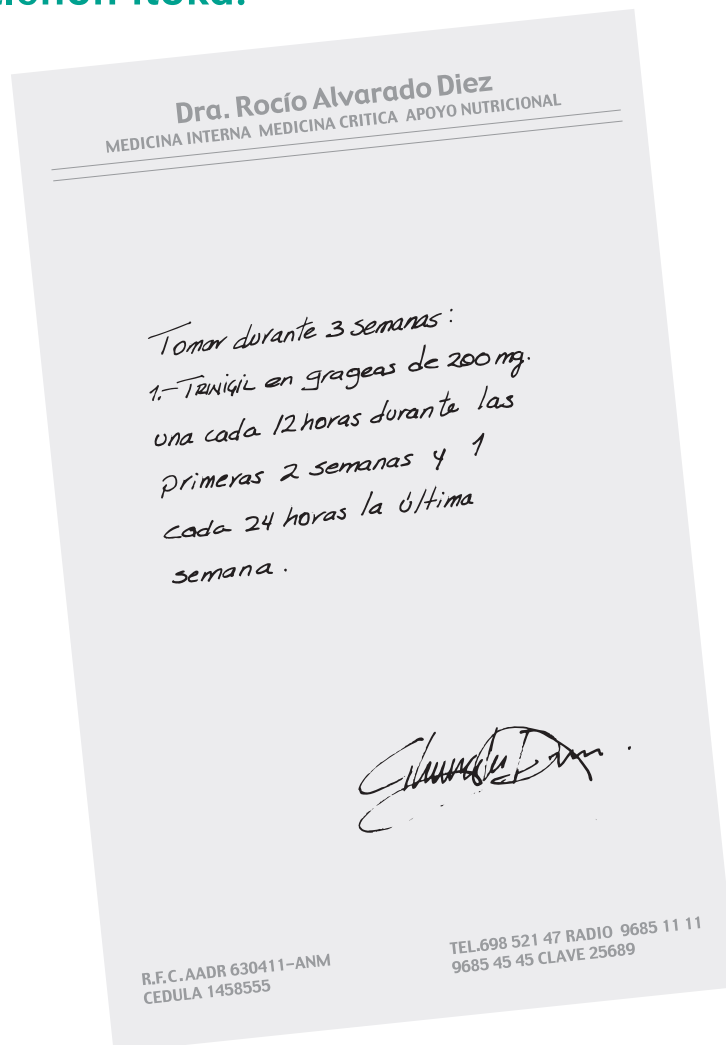 Dra. Rocío Alvarado Diez
MEDICINA INTERNA MEDICINA CRITICA APOYO NUTRICIONAL
Tomar durante 3 semanas:
1.- TRINIGIL en grageas de 200 mg.
una cada 12 horas durante las
primeras 2 semanas y 1
cada 24 horas la última
semana.
R.F.C. AADR 630411-ANM
CEDULA 1458555
TEL.698 521 47 RADIO 9685 11 11
9685 45 45 CLAVE 25689